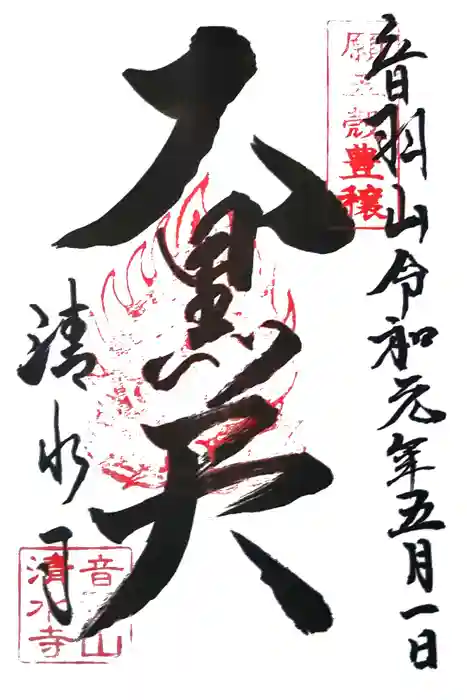 願五穀豊穣
音羽山令和元年五月一日
大黒天
清水寺
音羽山
清水寺